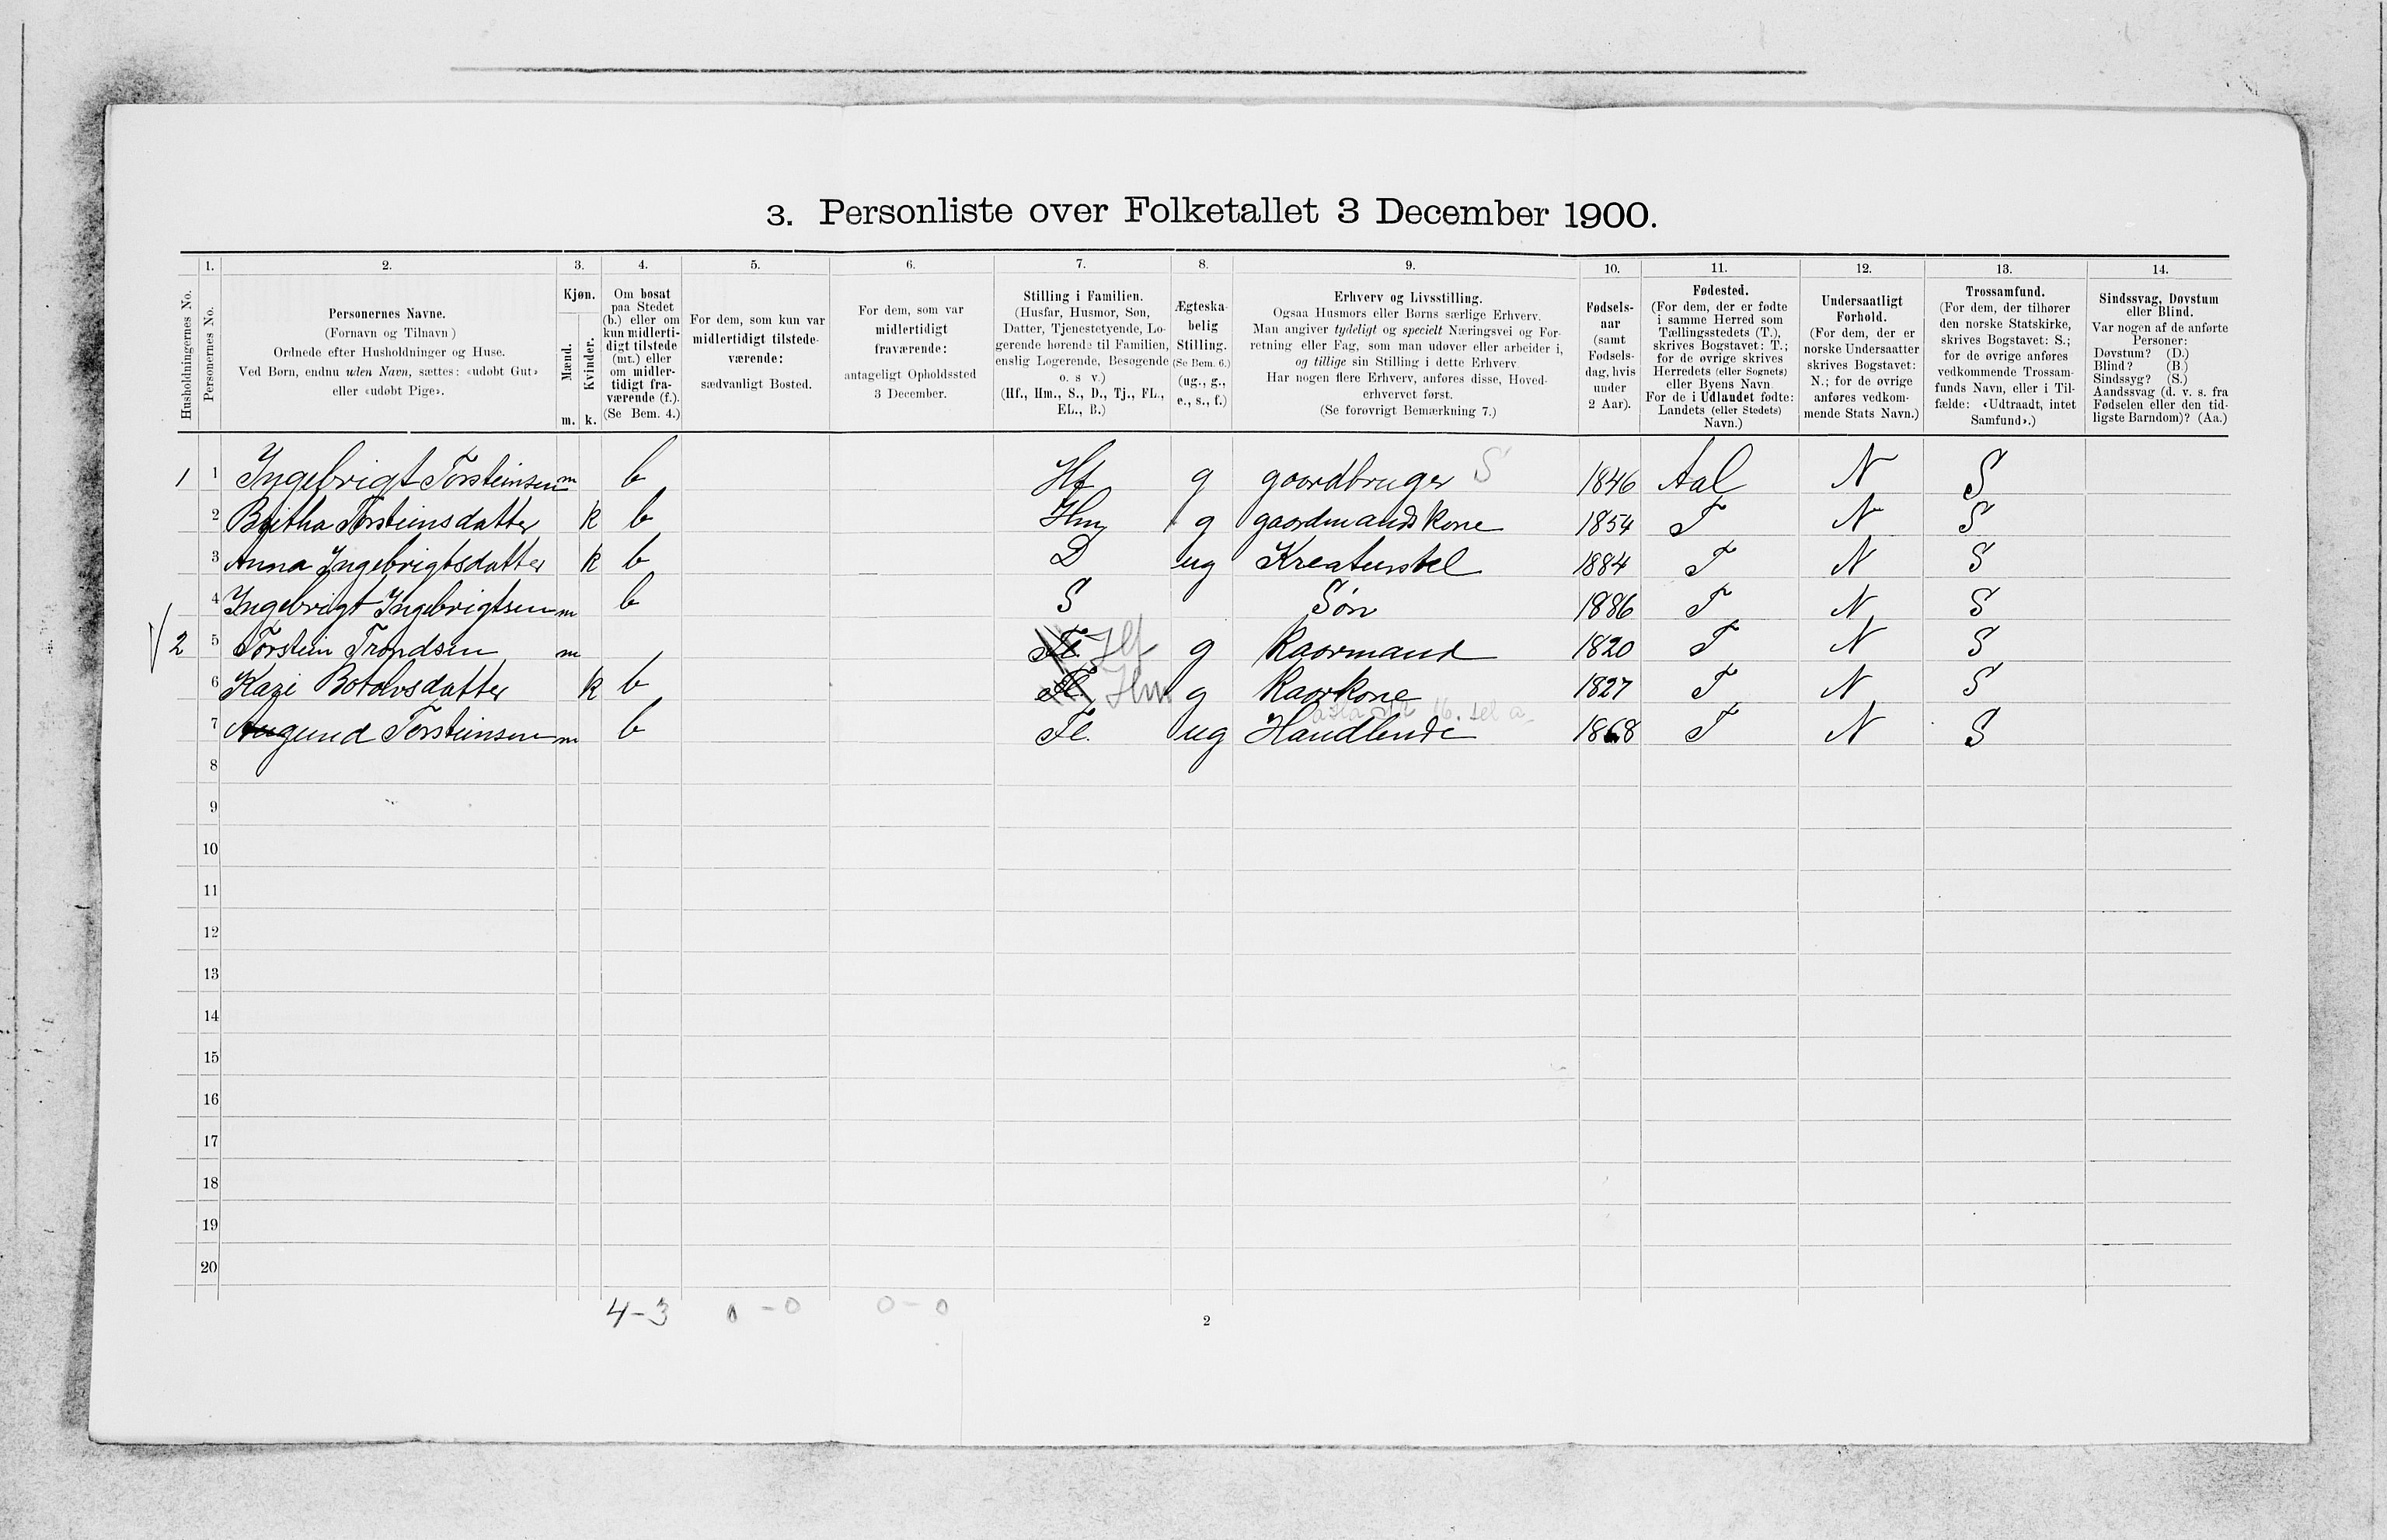 3. Personliste over Folketallet 3 December 1900.
1. 2. 3. 4. 5. 6. 7. 8. 9. 10. 11. 12. 13. 14.
Husholdningernes No.
Personernes No.
Personernes Navne.
(Fornavn og Tilnavn)
Ordnede efter Husholdninger og Huse.
Ved Børn, endnu uden Navn, sættes: «udøbt Gut»
eller «udøbt Pige».
Kjøn.
Mænd.
Kvinder.
m. k.
Om bosat
paa Stedet
(b.) eller om
kun midlerti-
digt tilstede
(mt.) eller
om midler-
tidigt fra-
værende (f.).
(Se Bem. 4.)
For dem, som kun var
midlertidigt tilstede-
værende:
sædvanligt Bosted.
For dem, som var
midlertidigt
fraværende:
antageligt Opholdssted
3 December.
Stilling i Familien.
(Husfar, Husmor, Søn,
Datter, Tjenestetyende, Lo-
gerende hørende til Familien,
enslig Logerende, Besøgende
o. s v.)
(Hf., Hm., S., D., Tj., FL.,
EL., B.)
Ægteska-
belig
Stilling.
(Se Bem. 6.)
(ug., g.,
e., s., f.)
Erhverv og Livsstilling.
Ogsaa Husmors eller Børns særlige Erhverv.
Man angiver tydeligt og specielt Næringsvei og For-
retning eller Fag, som man udøver eller arbeider i,
og tillige sin Stilling i dette Erhverv.
Har nogen flere Erhverv, anføres disse, Hoved-
erhvervet først.
(Se forøvrigt Bemærkning 7.)
Fødsels-
aar
(samt
Fødsels-
dag, hvis
under
2 Aar).
Fødested.
(For dem, der er fødte
i samme Herred som
Tællingsstedets (T.),
skrives Bogstavet: T.;
for de øvrige skrives
Herredets (eller Sognets)
eller Byens Navn
For de i Udlandet fødte:
Landets (eller Stedets)
Navn.)
Undersaatligt
Forhold.
(For dem, der er
norske Undersaatter
skrives Bogstavet:
N.; for de øvrige
anføres vedkom-
mende Stats Navn.)
Trossamfund.
(For dem, der tilhører
den norske Statskirke,
skrives Bogstavet: S.;
for de øvrige anføres
vedkommende Trossam-
funds Navn, eller i Til-
fælde: «Udtraadt, intet
Samfund».)
Sindssvag, Døvstum
eller Blind.
Var nogen af de anførte
Personer:
Døvstum? (D.)
Blind? (B.)
Sindssyg? (S.)
Aandssvag (d. v. s. fra
Fødselen eller den tid-
ligste Barndom)? (Aa.)
1 1 Ingebrigt Torsteinsen m b Hf g gaardbruger S 1846 Aal N S
2 Britha Torsteinsdatter k b Hm g gaardmandskone 1854 T N S
3 Anna Ingebrigtsdatter k b D ug Kreaturstel 1884 T N S
4 Ingebrigt Ingebrigtsen m b S Søn 1886 T N S
2 5 Torstein Trondsen m Fl. Hf g Kaarmand 1820 T N S
6 Kari Botolvsdatter k b Fl. Hm g Kaarkone 1827 T N S
7 Augund Torsteinsen m b Fl. ug Handlende 1868 T N S
8
9
10
11
12
13
14
15
16
17
18
19
20
4-3 0-0 0-0
2